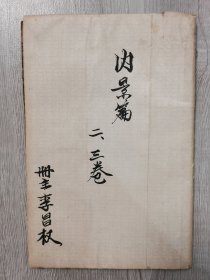 内景篇
二、三卷
册主李昌权